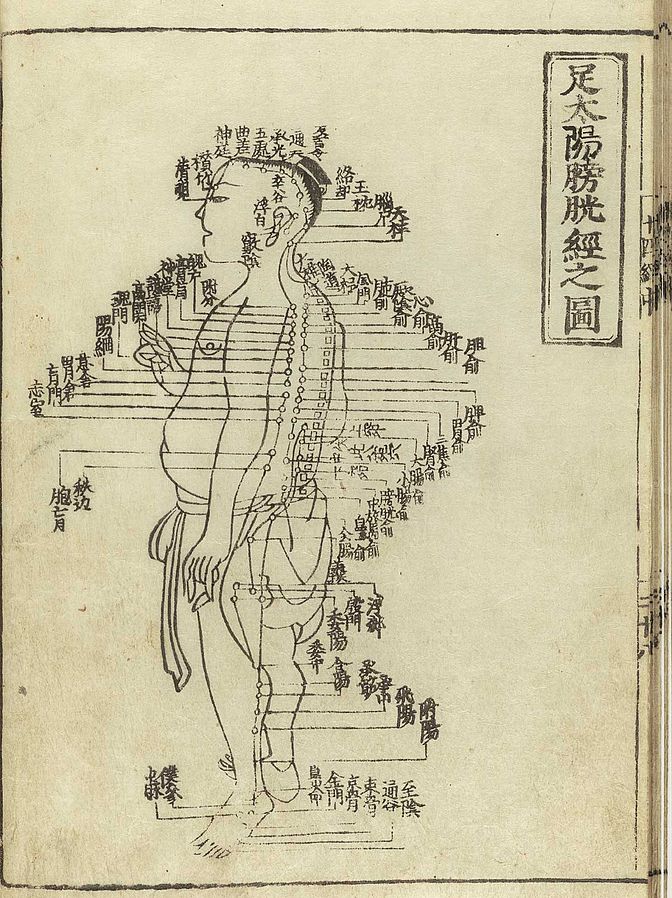 足太陽膀胱經之圖
通天
承光
五處
曲差
神庭
攅竹
睛明
絡却
玉枕
腦戶
天柱
率谷
浮白
竅陰
大椎
陶道
大杼
風門
肺俞
厥陰俞
心俞
膈俞
肝俞
胆俞
脾俞
胃俞
三焦俞
腎俞
大腸俞
小腸俞
膀胱俞
中膂俞
白環俞
附分
魄戶
膏肓
神堂
譩譆
膈關
魂門
陽綱
意舍
胃倉
肓門
志室
秩边
胞肓
上
次
中
下
會陽
扶承
殷門
浮郄
委陽
委中
合陽
承筋
承山
飛陽
附陽
僕參
申脉
金門
京骨
束骨
通谷
至陰
十四經中